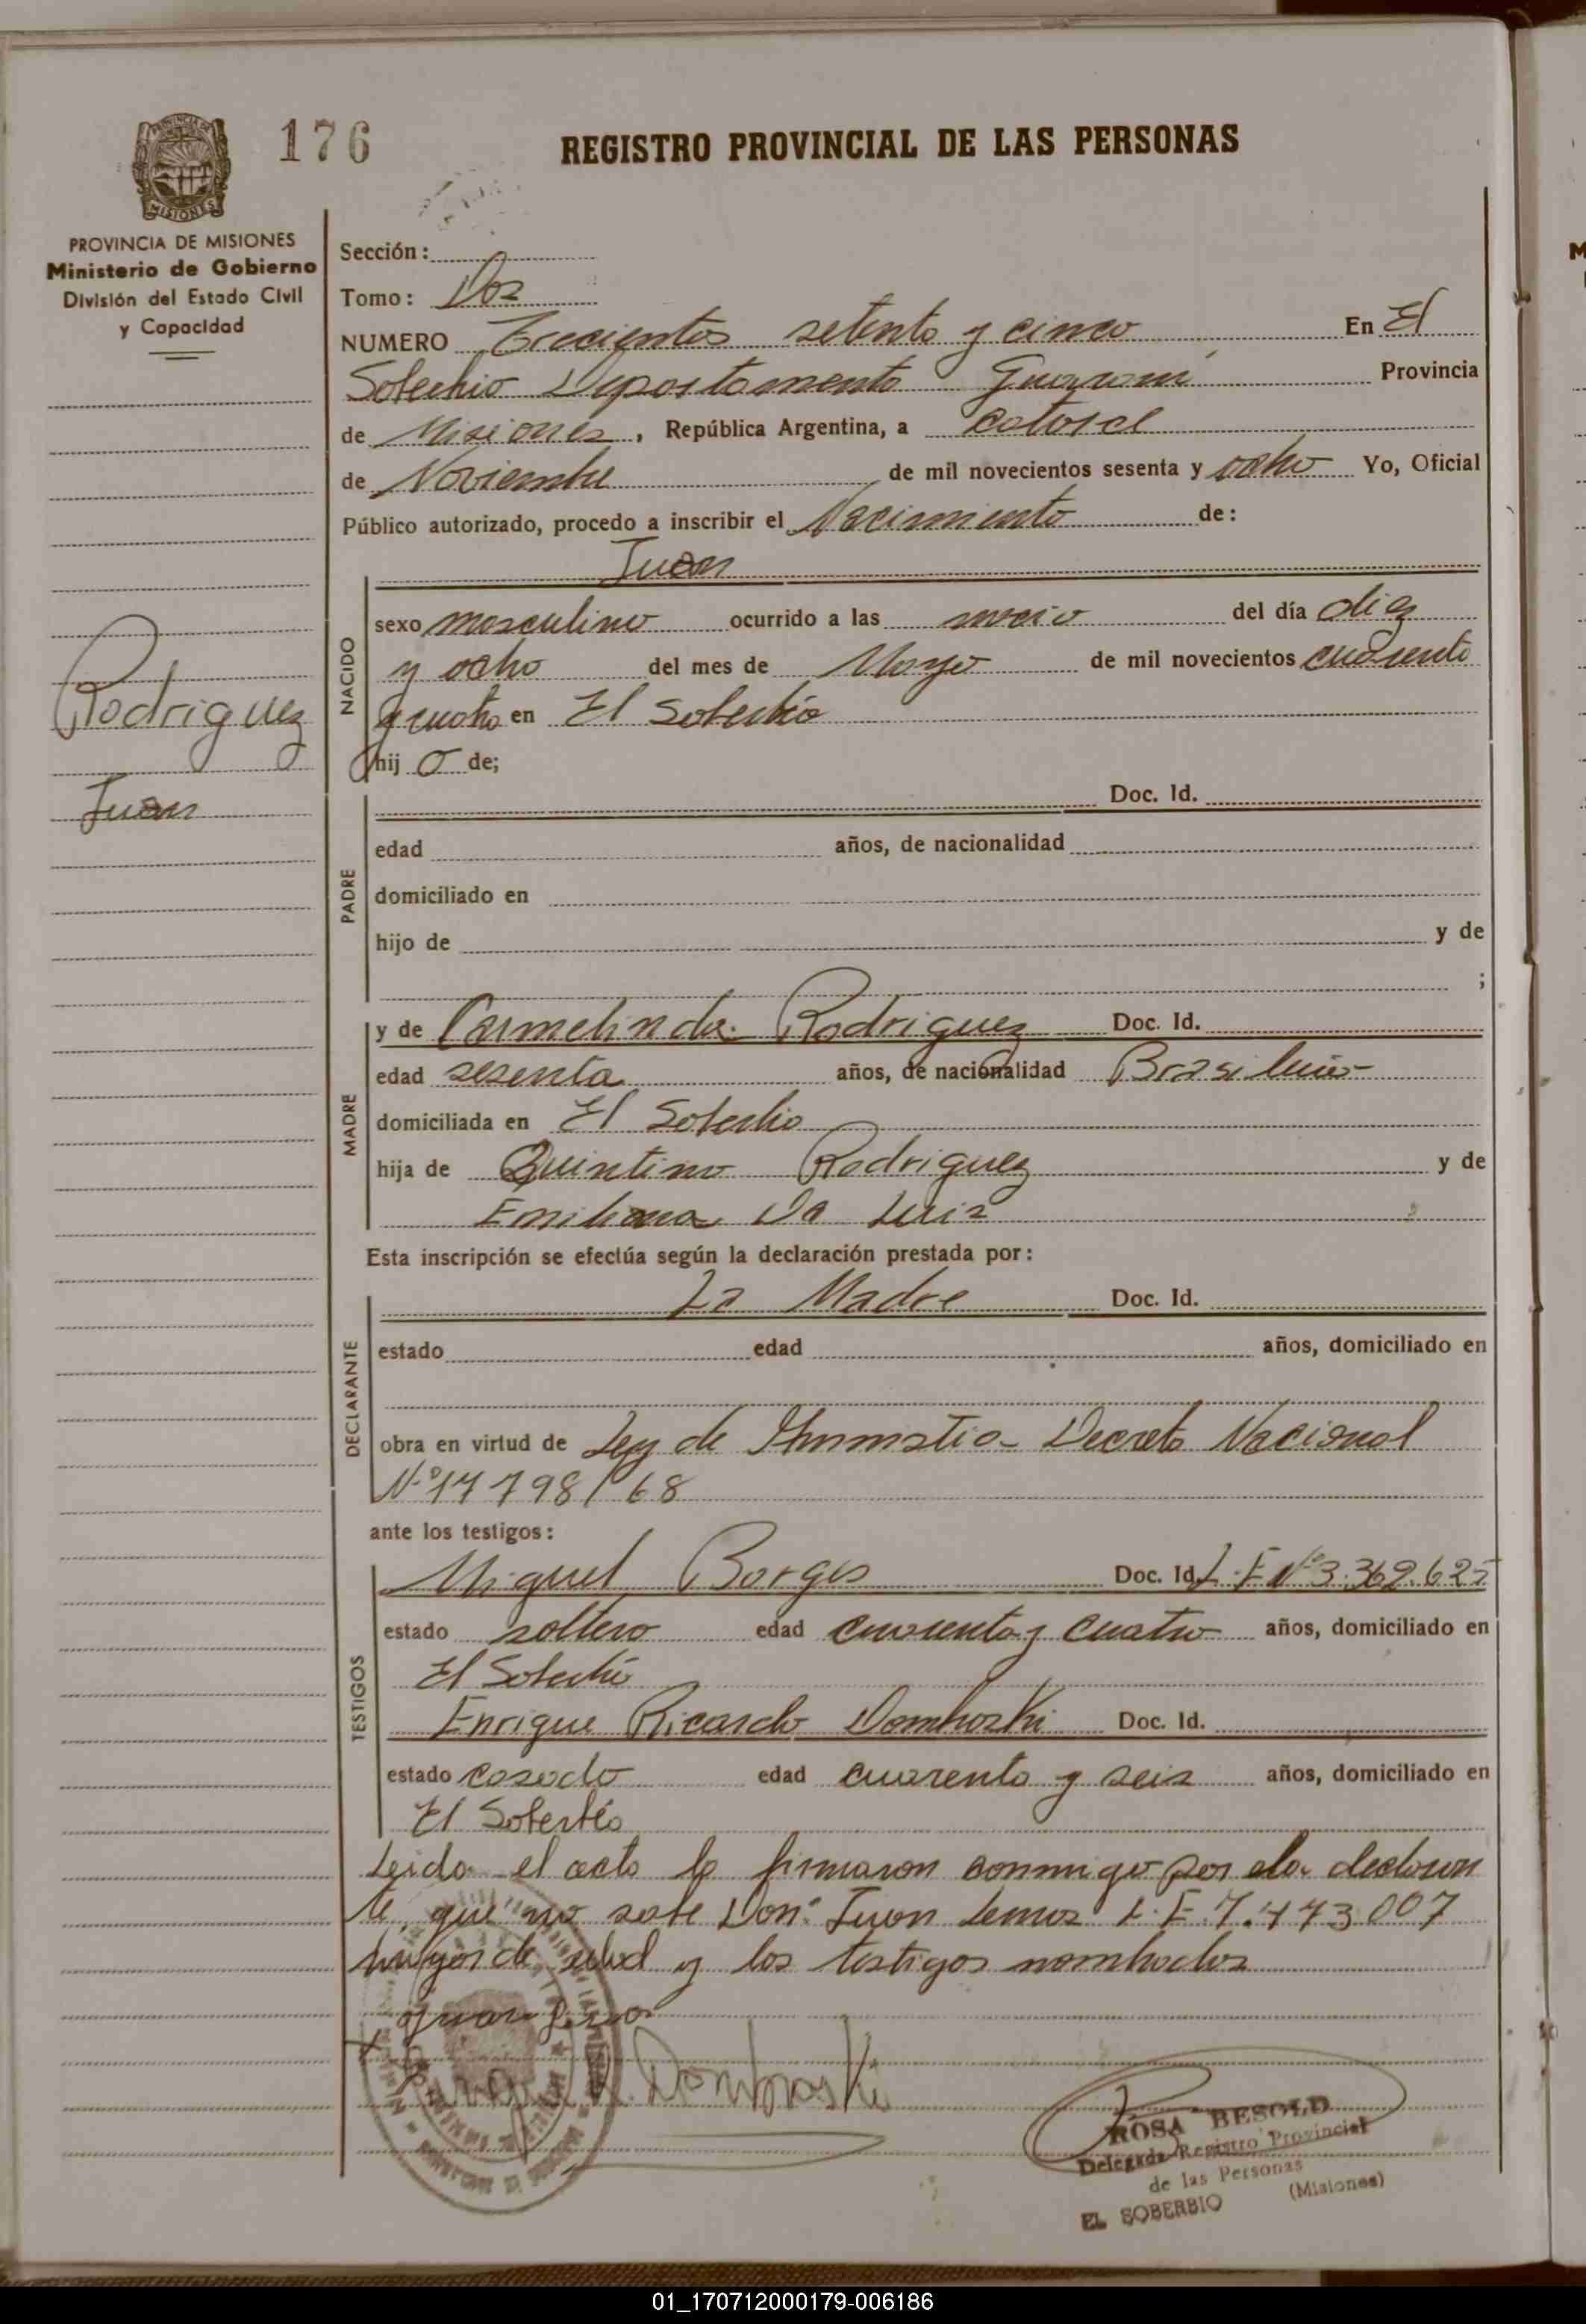 176
REGISTRO PROVINCIAL DE LAS PERSONAS
PROVINCIA DE MISIONES
MISIONES
PROVINCIA DE MISIONES
Ministerio de Gobierno
División del Estado Civil
y Capacidad
Rodriguez
Juan
Sección:
Tomo: Dos
NUMERO Trecientos setenta y cinco En El
Soberbio Departamento Guaraní Provincia
de Misiones, República Argentina, a catorce
de Noviembre de mil novecientos sesenta y ocho Yo, Oficial
Público autorizado, procedo a inscribir el Nacimiento de:
Juan
NACIDO
sexo masculino ocurrido a las del día diez
y ocho del mes de Mayo de mil novecientos cuarenta
y cuatro en El Soberbio
hij o de;
PADRE
Doc. Id.
edad años, de nacionalidad
domiciliado en
hijo de y de
;
MADRE
y de Carmelinda Rodriguez Doc. Id.
edad sesenta años, de nacionalidad Brasilera
domiciliada en El Soberbio
hija de Quintino Rodriguez y de
Emiliana Da Luiz
Esta inscripción se efectúa según la declaración prestada por:
DECLARANTE
La Madre Doc. Id.
estado edad años, domiciliado en
obra en virtud de Ley de Decreto Nacional
Nº 17798/68
ante los testigos:
TESTIGOS
Miguel Borges Doc. Id. L.E Nº 3.369.625
estado soltero edad cuarenta y cuatro años, domiciliado en
El Soberbio
Enrique Ricardo Domhoski Doc. Id.
estado casado edad cuarenta y seis años, domiciliado en
El Soberbio
Leida el acta la firmaron conmigo por la declaran
te, que no sabe Don: Juan Lemos L.E 7.473.007
mayor de edad y los testigos nombrados
Juan Lemos
ROSA BESOLD
Delegada Registro Provincial
de las Personas
EL SOBERBIO (Misiones)
01_170712000179-006186